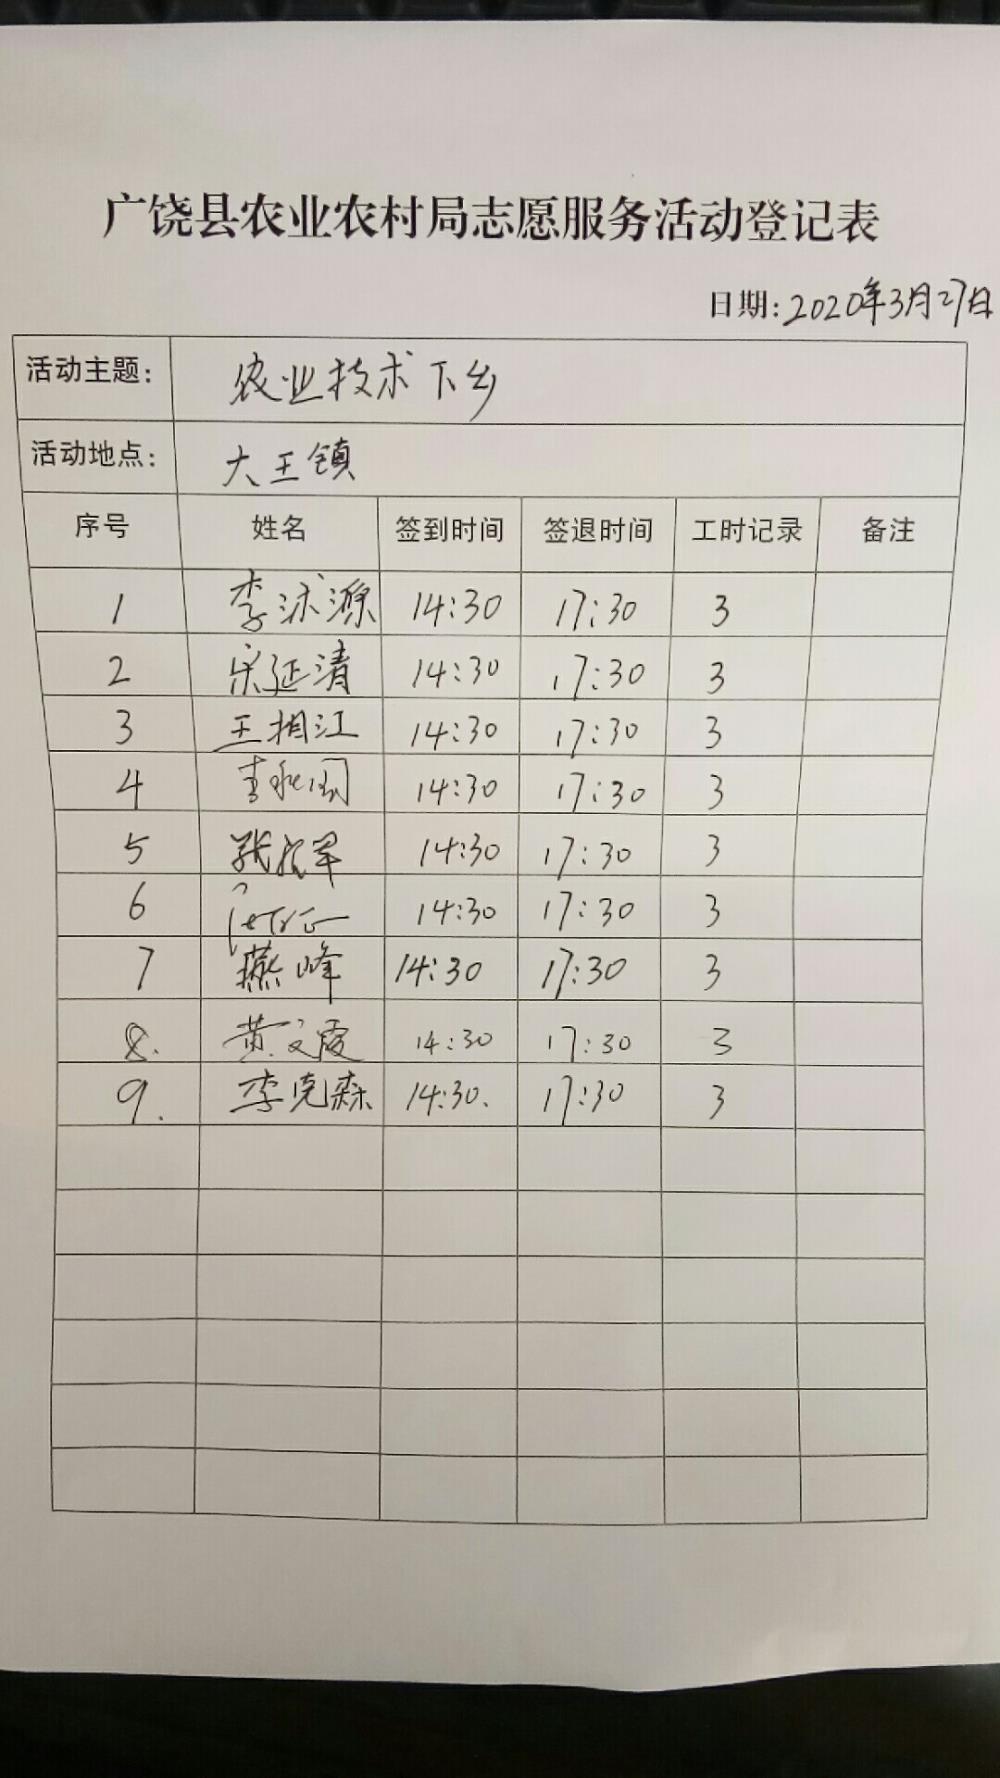 广饶县农业农村局志愿服务活动登记表
日期: 2020年3月27日
活动主题: 农业技术下乡
活动地点: 大王镇
序号 姓名 签到时间 签退时间 工时记录 备注
1 李沭源 14:30 17:30 3
2 宋延清 14:30 17:30 3
3 王相江 14:30 17:30 3
4 14:30 17:30 3
5 张 军 14:30 17:30 3
6 14:30 17:30 3
7 燕峰 14:30 17:30 3
8. 黄文霞 14:30 17:30 3
9. 李克森 14:30. 17:30 3